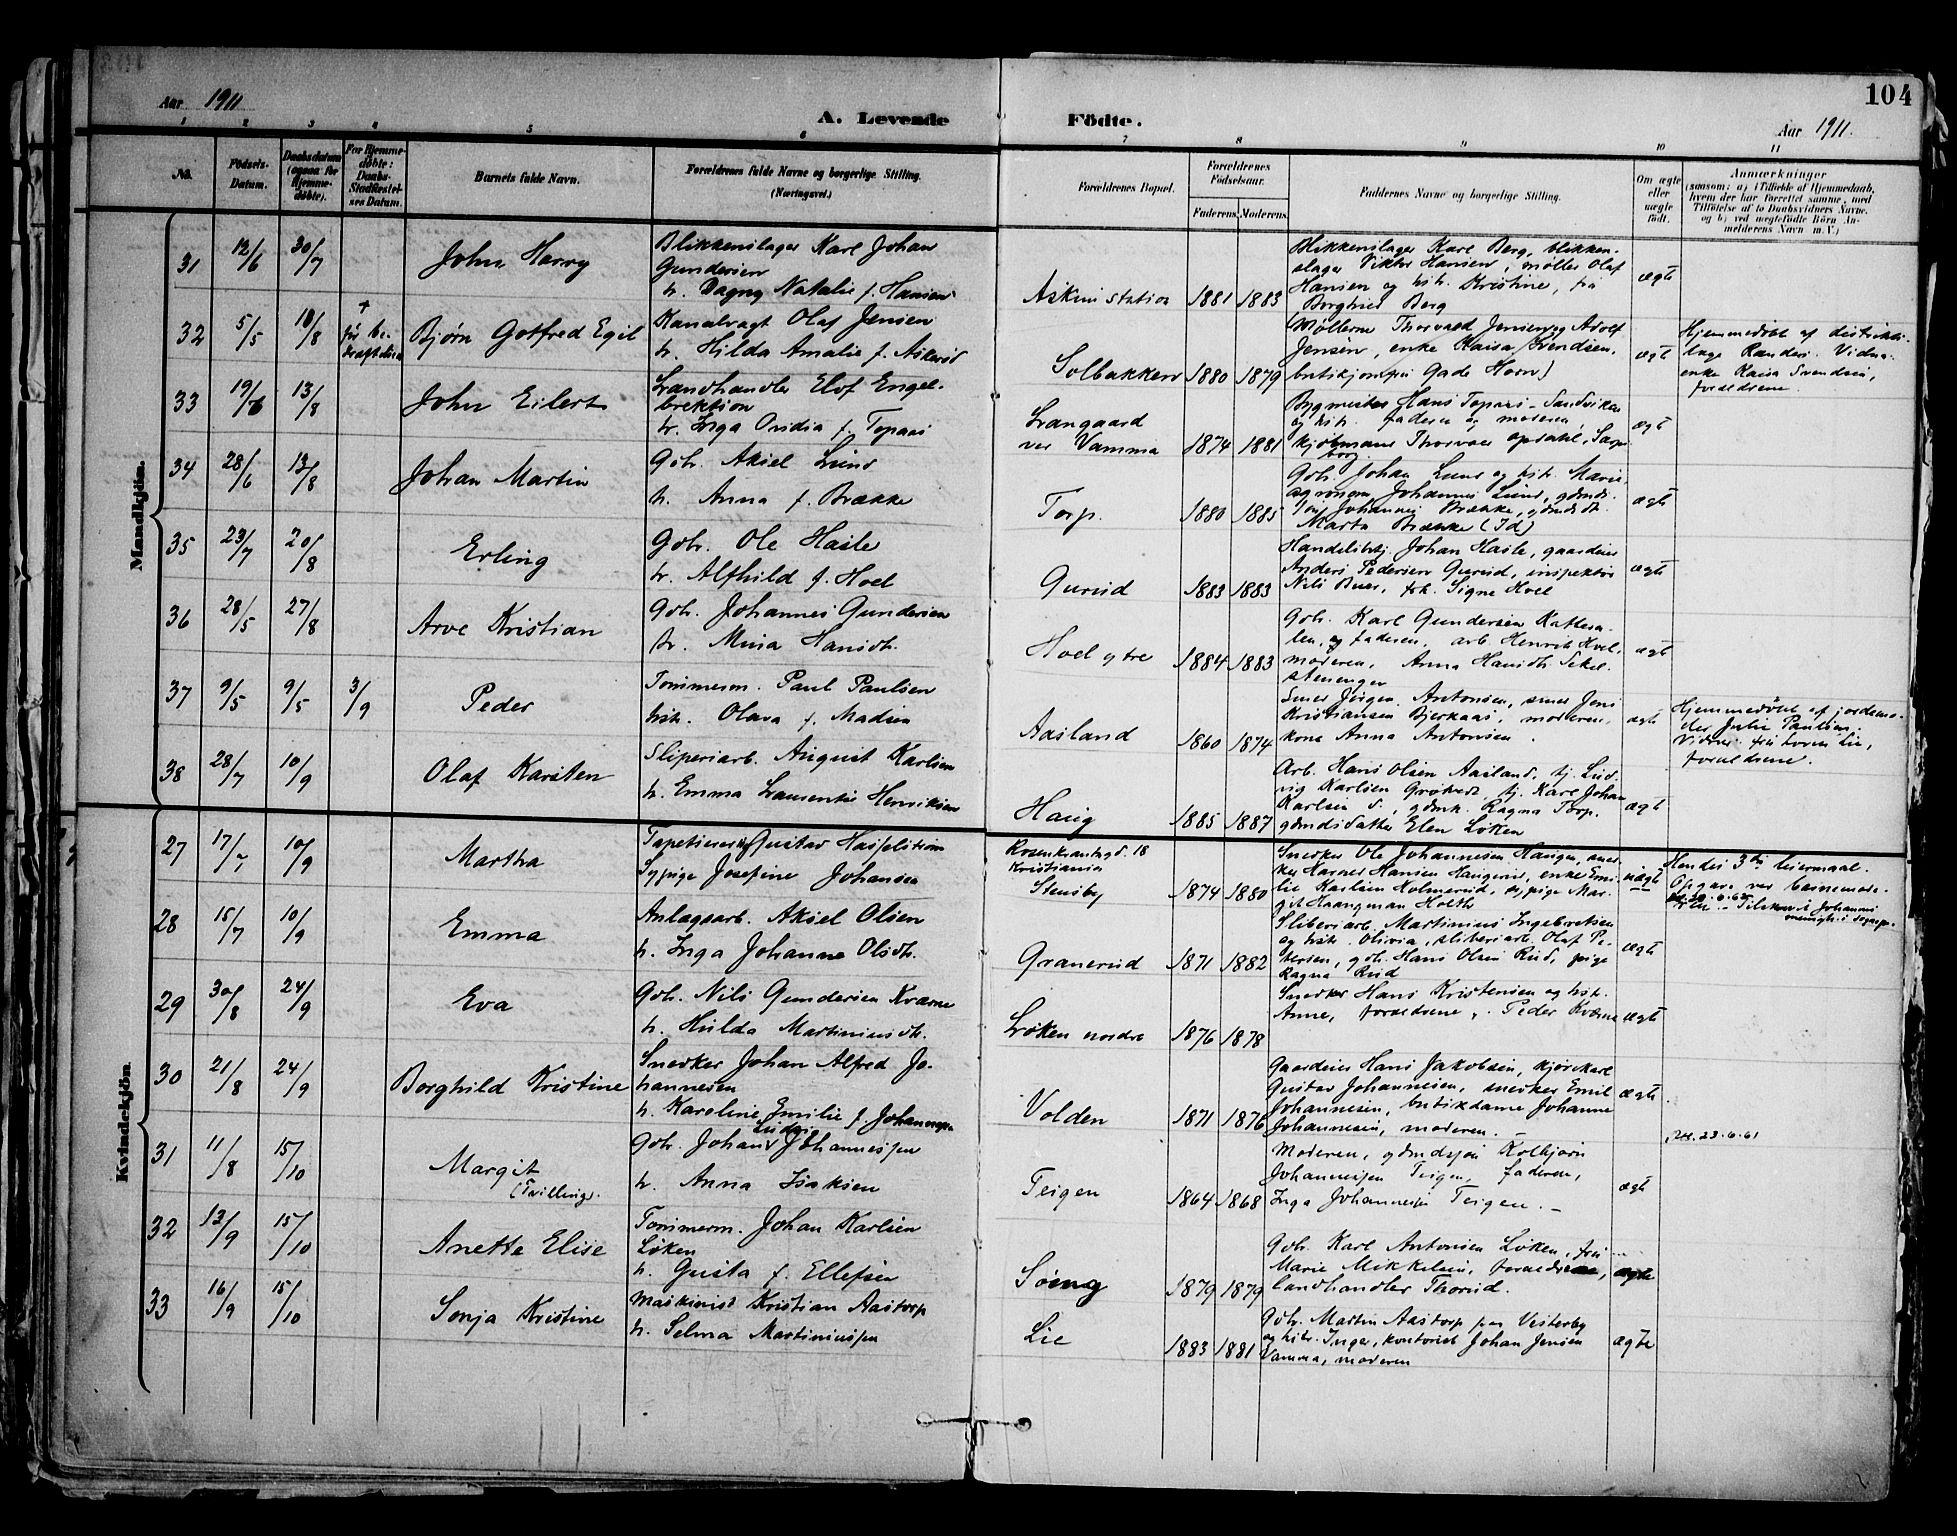 104
Aar 1911
A. Levende Födte.
Aar 1911.
1 2 3 4 5 6 7 8 9 10 11
No. Födsels-Datum. Daabsdatum (ogsaa for Hjemme-döbte). For Hjemme-döbte: Daabs-Stadfæstel-ses Datum. Barnets fulde Navn. Forældrenes fulde Navne og borgerlige Stilling. (Næringsvei.) Forældrenes Bopæl. Forældrenes Födselsaar. Faderens. Moderens. Faddernes Navne og borgerlige Stilling. Om ægte eller uægte födt. Anmærkninger (saasom: a) i Tilfælde af Hjemmedaab, hvem der har forrettet samme, med Tilföielse af to Daabsvidners Navne, og b) ved uægtefödte Börn An-melderens Navn m. V.)
Mandkjön.
31 12/6 30/7 John Harry
Blikkenslager Karl Johan
Gundersen
h. Dagny Natalie f. Hansen
Askim station 1881 1883
Blikkenslager Karl Berg, blikken-
slager Viktor Hansen, møller Olaf
Hansen og hstr. Kristine, frk
Borghild Berg
ægte
32 5/5 18/8 † før be-kræftelsen Bjørn Gotfred Egil
Kanalvagt Olaf Jensen
h. Hilda Amalie f.
Solbakken 1880 1879
Møllerne Thorvald Jensen og Adolf
Jensen, enke Kaisa Svendsen,
butikjomfru Gade Horn
ægte
Hjemmedøbt af distrikts-
læge Randers. Vidne:
enke Kaisa Svendsen,
forældrene.
33 19/6 13/8 John Eilert
Landhandler Elof Engel-
brektson
h. Inga Ovidia f. Topaas
Langaard
ved Vamma 1874 1881
Bygmester Hans Topaas - Sandviken
og hstr. faderen og moderen,
kjøbmand Thorvald Opdahl, Sarps-
borg.
ægte
34 28/6 13/8 Johan Martin
Gbr. Aksel Lund
h. Anna f. Brække
Torp. 1880 1885
Gbr. Johan Lund og hstr. Marie,
agronom Johannes Lund, gdmds.
søn Johannes Brække, gdmdsdt.
Marta Brække (Id)
ægte
35 23/7 20/8 Erling
Gbr. Ole Hasle
h. Alfhild f. Hoel
Gurud 1883 1883
Handelsbtj. Johan Hasle, gaardeier
Anders Pedersen Gurud, inspektør
Nils Buer, frk. Signe Hoel
ægte
36 28/5 27/8 Arve Kristian
Gbr. Johannes Gundersen
h. Mina Hansdtr.
Hoel ytre 1884 1883
Gbr. Karl Gundersen Kattesa-
len, og faderen, arb. Henrik Hoel,
moderen, Anna Hansdtr.
ægte
37 9/5 9/5 3/9 Peder
Tømmerm. Paul Paulsen
hstr. Olava f. Madsen
Aasland 1860 1874
Smed Jørgen Antonsen, smed Jens
Kristiansen Bjerkaas, moderen,
kone Anna Antonsen.
ægte
Hjemmedøbt af jordemo-
der Julie Paulsen.
Vidne: fru Lie,
forældrene.
38 28/7 10/9 Olaf Karsten
Sliperiarb. August Karlsen
h. Emma Laurentse Henriksen
Haug 1885 1887
Arb. Hans Olsen Aasland, tj. Lud-
vig Karlsen Grøtvedt, tj. Karl Johan
Karlsen d., gdmk. Ragna Torp.
gdmdsdatter Elen Løken
ægte
Kvindekjön.
27 17/7 10/9 Martha
Tapetserer Gustav Hasselstrøm
Sypige Josefine Johansen
Rosenkrantzgd. 18
Kristiania
Stensby 1874 1880
Snedker Ole Johannesen Haugen, sned-
ker Harald Hansen Haugerud, enke Emi-
lie Karlsen Holmerud, sypige Mar-
git Haangman Holth
uægte
Hendes 3die leiermaal.
Opgave ved barnemode-
ren.
28 15/7 10/9 Emma
Anlægsarb. Aksel Olsen
h. Inga Johanne Olsdtr.
Granerud 1871 1882
Sliberiarb. Martinius Ingebretsen
og hstr. Olivia, sliberiarb. Olaf Pe-
tersen, gbr. Hans Olsen Rud, pige
Ragna Rud
ægte
29 30/8 24/9 Eva
Gbr. Nils Gundersen Kværne
h. Hulda Martiniusdtr.
Løken nordre 1876 1878
Snedker Hans Kristensen og hstr.
Anne, forældrene, Peder Kværne
ægte
30 21/8 24/9 Borghild Kristine
Snedker Johan Alfred Jo-
hannesen
h. Karoline Emilie f. Johannesen
Volden 1871 1876
Gaardeier Hans Jakobsen, kjørekarl
Gustav Johannesen, snedker Emil
Johannesen, butikdame Johanne
Johannesen, moderen.
ægte
31 11/8 15/10 Margit
(Tvilling).
Gbr. Johan Ludvig Johannessen
h. Anna Isaksen
Teigen 1864 1868
Moderen, gdmdssøn Kolbjørn
Johannessen Teigen, faderen,
Inga Johannessen Teigen. -
ægte
23.6.61
32 13/9 15/10 Anette Elise
Tømmerm. Johan Karlsen
Løken
h. Gusta f. Ellefsen
Søeng 1879 1879
Gbr. Karl Antonsen Løken, frk
Marie Mikkelsen, forældrene,
landhandler Thorud.
ægte
33 16/9 15/10 Sonja Kristine
Maskinist Kristian Aastorp
h. Selma Martiniussen
Lie 1883 1881
Gbr. Martin Aastorp paa Vesterby
og hstr. Inger, kontorist Johan Jensen
Vamma, moderen
ægte